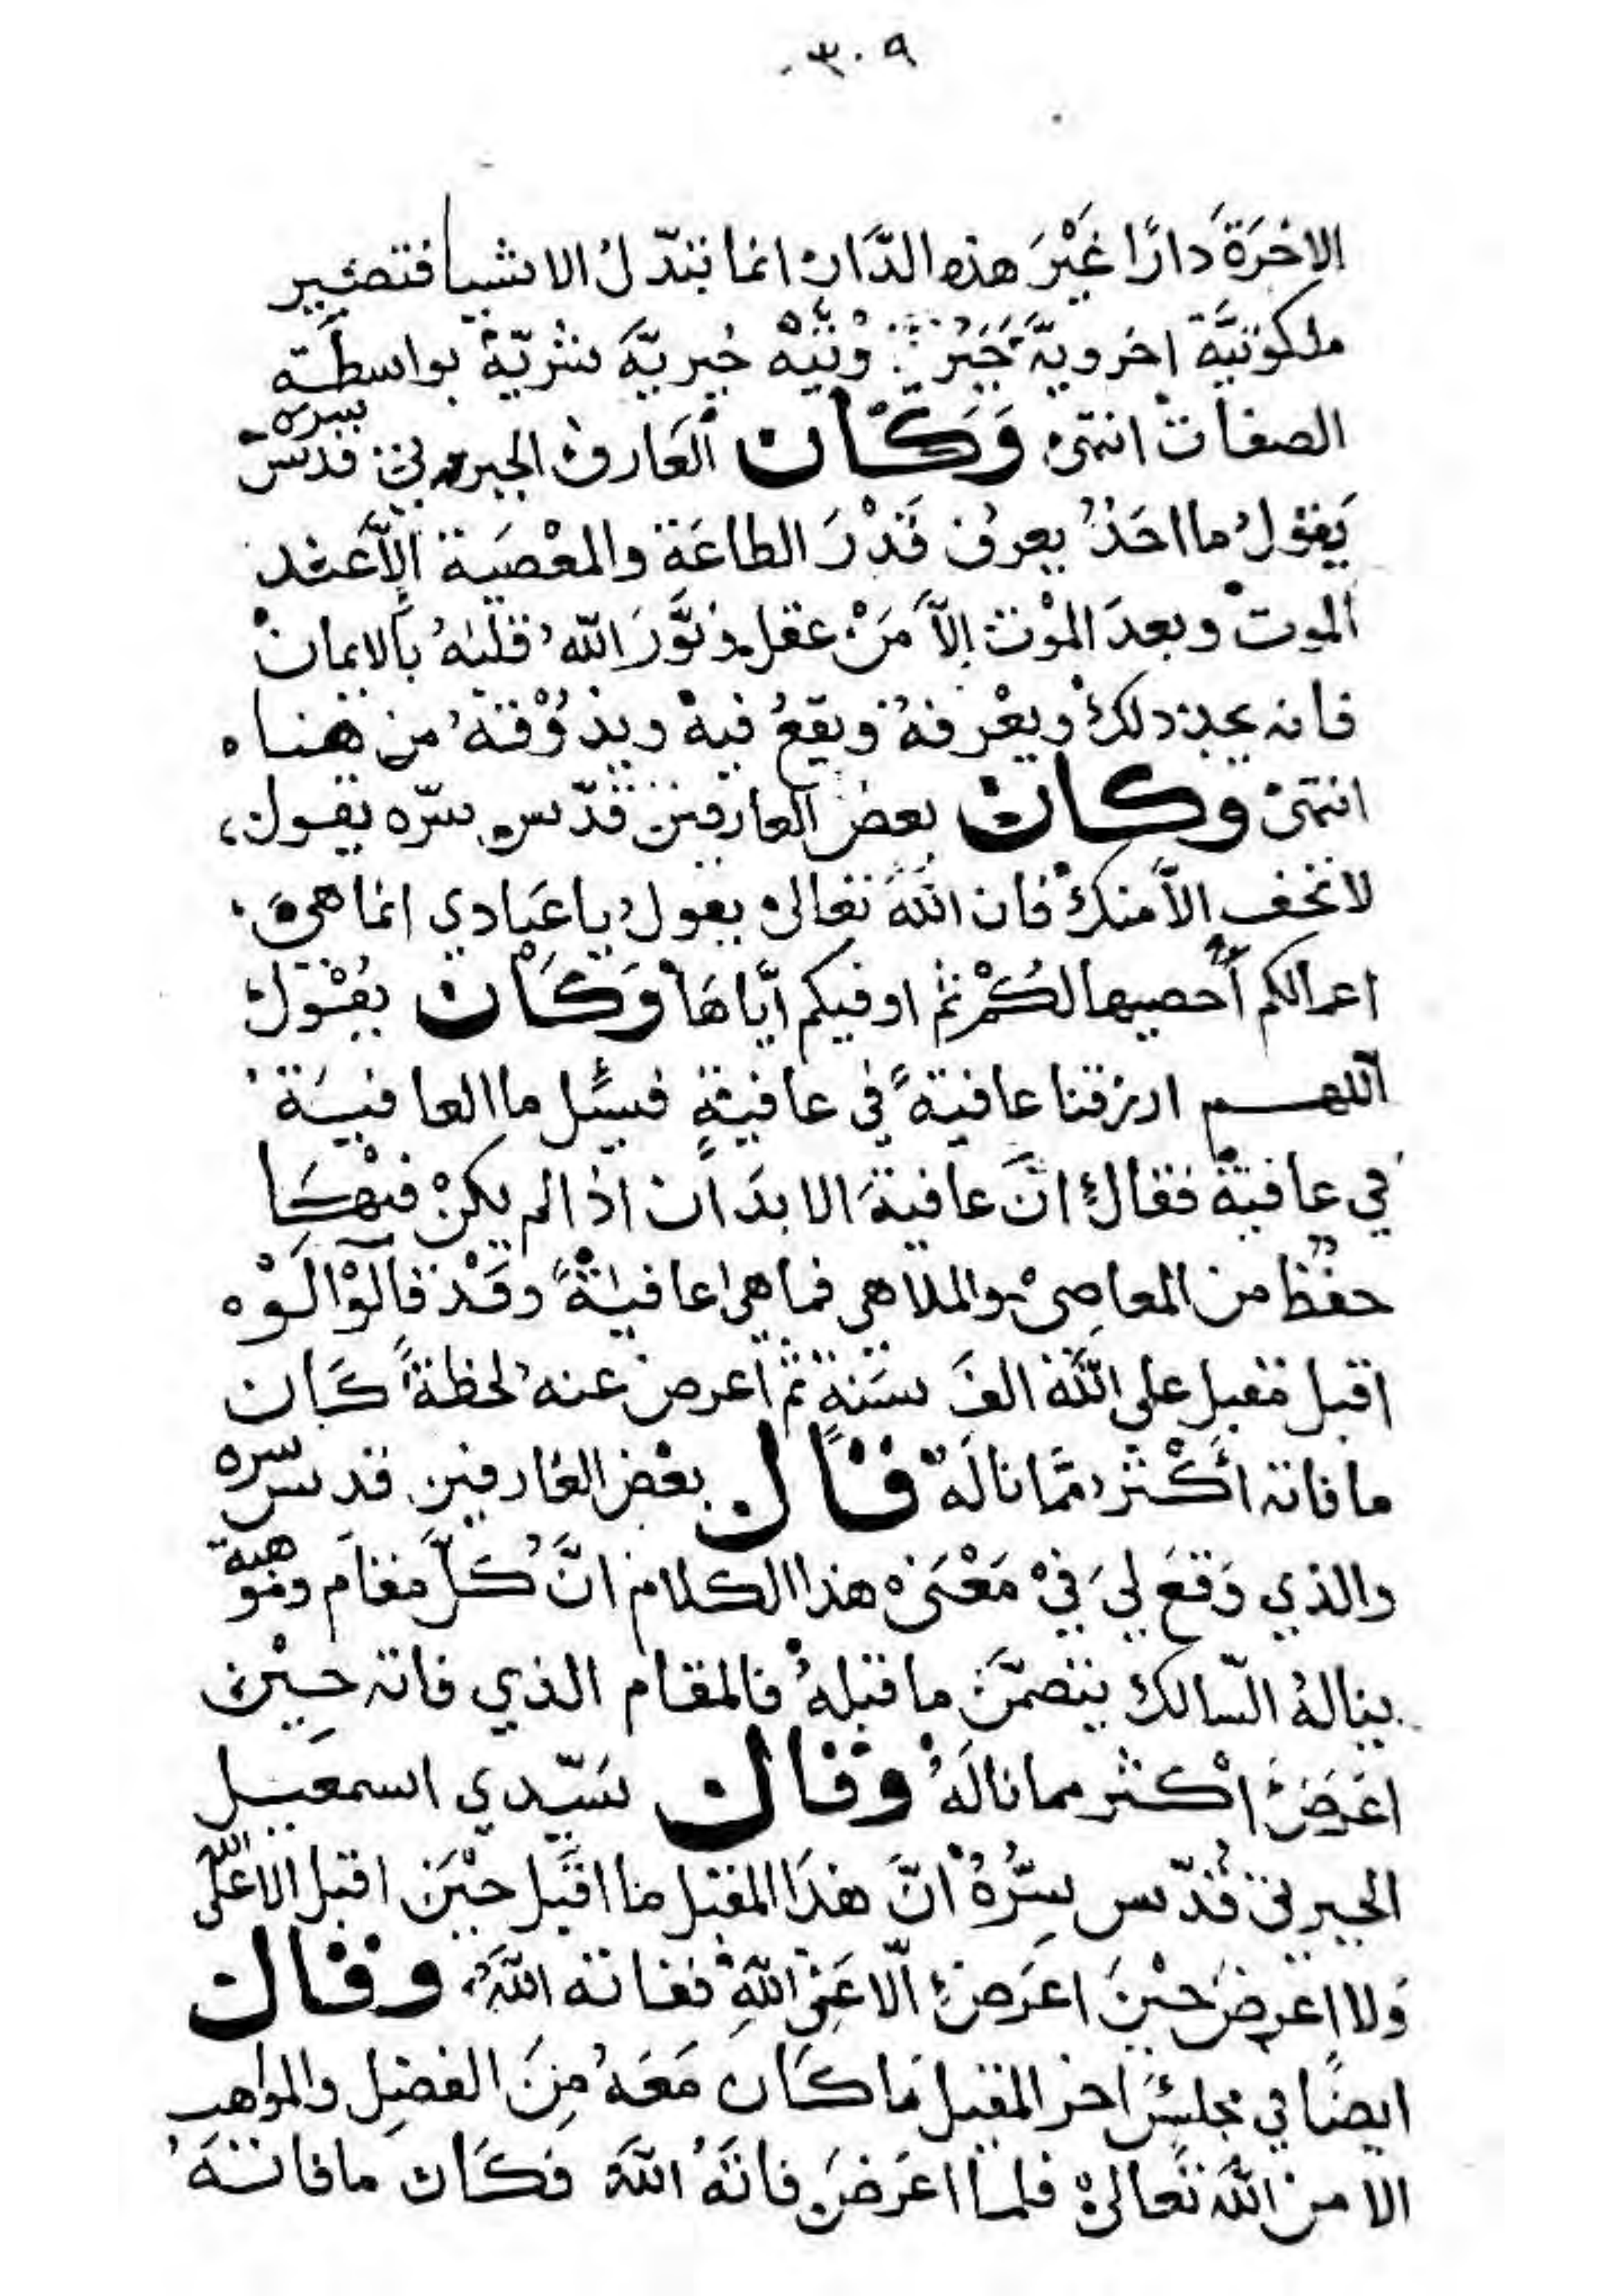 ٣٠٩
الاخرَةَ دارًا غَيْرَ هذه الدَّار انما تبدّل الاشيا فتصير
ملكوتيَّة اخرويةَّ خَيْر وَنيَّه خيريَّة شريّة بواسطَة
الصفات انتهىٰ وَكَان العَارف الجبرتي قدس سره
يَقول ما احَدٌ يعرف قَدْرَ الطاعَة والمعْصيَة الاَّ عند
الموت وبعدَ الموْت إلاَّ مَنْ عقل ونَوَّرَ اللهُ قلبَهُ بالايمان
فانه يجد ذلك ويعْرفهُ ويقعُ فيه ويذوُقهُ من هنا ه
انتهىٰ وكان بعض العارفين قدّس سرّه يقول،
لا تخف الاَّ منك فان اللهَ تعالى يقولُ يا عبَادي انما هيَ
اعمالكم اُحصيها لكُمْ ثم اوفيكم ايَّاهَا وَكَان يَقُول
اللهم ارزقنا عافيةً في عافيةٍ فسئل ما العافيَة
في عافية فقال انَّ عافيةَ الابدَان اذا لم يكنْ فيهَا
حفظ من المعاصي والملاهي فما هي عافيةً وقَدْ قالوْا لَوْه
اقبل مقبل على الله الفَ سَنةٍ ثم اعرض عنه لحظةً كَان
ما فاته أكْثر ممَّا نالَهُ قال بعْض العارفين قدس سره
والذي وَقعَ ليَ فيْ مَعْنىٰ هذا الكلام انَّ كُلَّ مقَام وموهبة
ينالهُ السّالك يتضمَّنُ ما قبلهُ فالمقام الذي فاته حِيْنَ
اعَرَضَ اكثر مما نالَهُ وقال سَيّدي اسمعيل
الجبرتي قُدّس سِرُّهُ انَّ هذَا المقبل ما اقَبل حيْنَ اقبل الا علَى الله
وَلا اعرضَ حيْنَ اعَرَضَ الّا عَن اللهِ ففاته اللهُ وقال
ايضًا في مجلسٍ اخر المقبل مَا كَان مَعَهُ مِنَ الفضِل والمواهب
الا من اللهَ تعالىٰ فلما اعَرضَ فاتَهُ اللهُ فكَان ما فاتَهُ